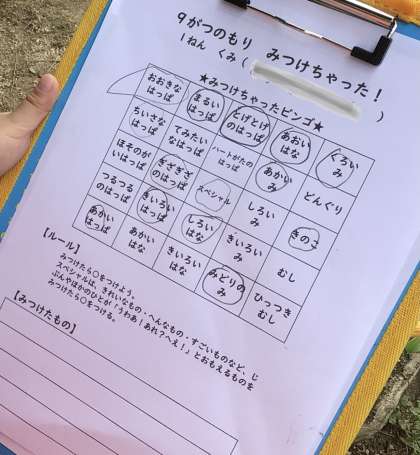 9がつのもり みつけちゃった！
1ねん くみ( )
★みつけちゃったビンゴ★
おおきな
はっぱ
まるい
はっぱ
とげとげ
のはっぱ
あおい
はな
くろい
み
ちいさな
はっぱ
てみたい
なはっぱ
ハートがたの
はっぱ
あかい
み
どんぐり
ほそのが
いはっぱ
ぎざぎざ
のはっぱ
スペシャル
しろい
み
きのこ
つるつる
のはっぱ
きいろい
はっぱ
しろい
はな
きいろい
み
むし
あかい
はっぱ
あかい
はな
きいろい
はな
みどりの
み
ひっつき
むし
【ルール】
みつけたら〇をつけよう。
スペシャルは、きれいなもの・へんなもの・すごいものなど、じ
ぶんやほかのひとが「うわあ！あれ？へえ！」とおもえるものを
みつけたら〇をつける。
【みつけたもの】